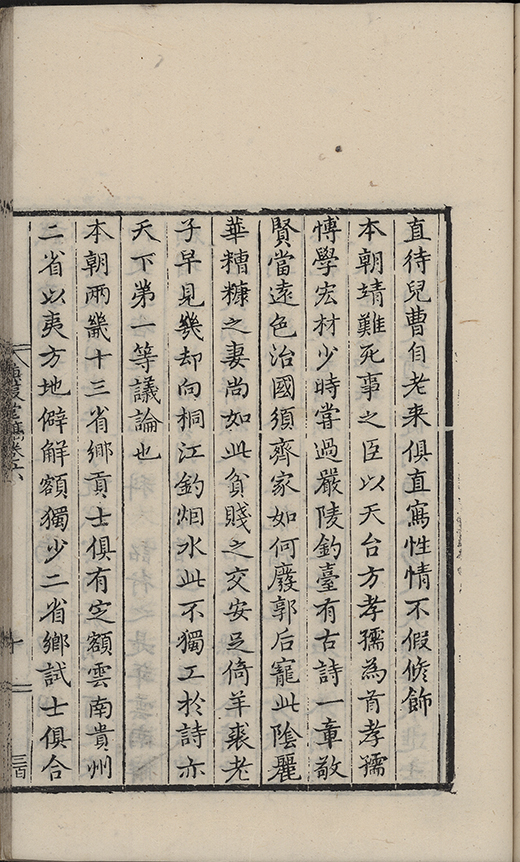 直待兒曹自老来俱直寫性情不假修飾
本朝靖難死事之臣以天台方孝孺為首孝孺
博學宏材少時嘗過嚴陵釣臺有古詩一章敬
賢當遠色治國須齊家如何廢郭后寵此陰麗
華糟糠之妻尚如此貧賤之交安足倚羊裘老
子早見幾却向桐江釣烟水此不獨工於詩亦
天下第一等議論也
本朝兩畿十三省鄉貢士俱有定額雲南貴州
二省以夷方地僻解額獨少二省鄉試士俱合